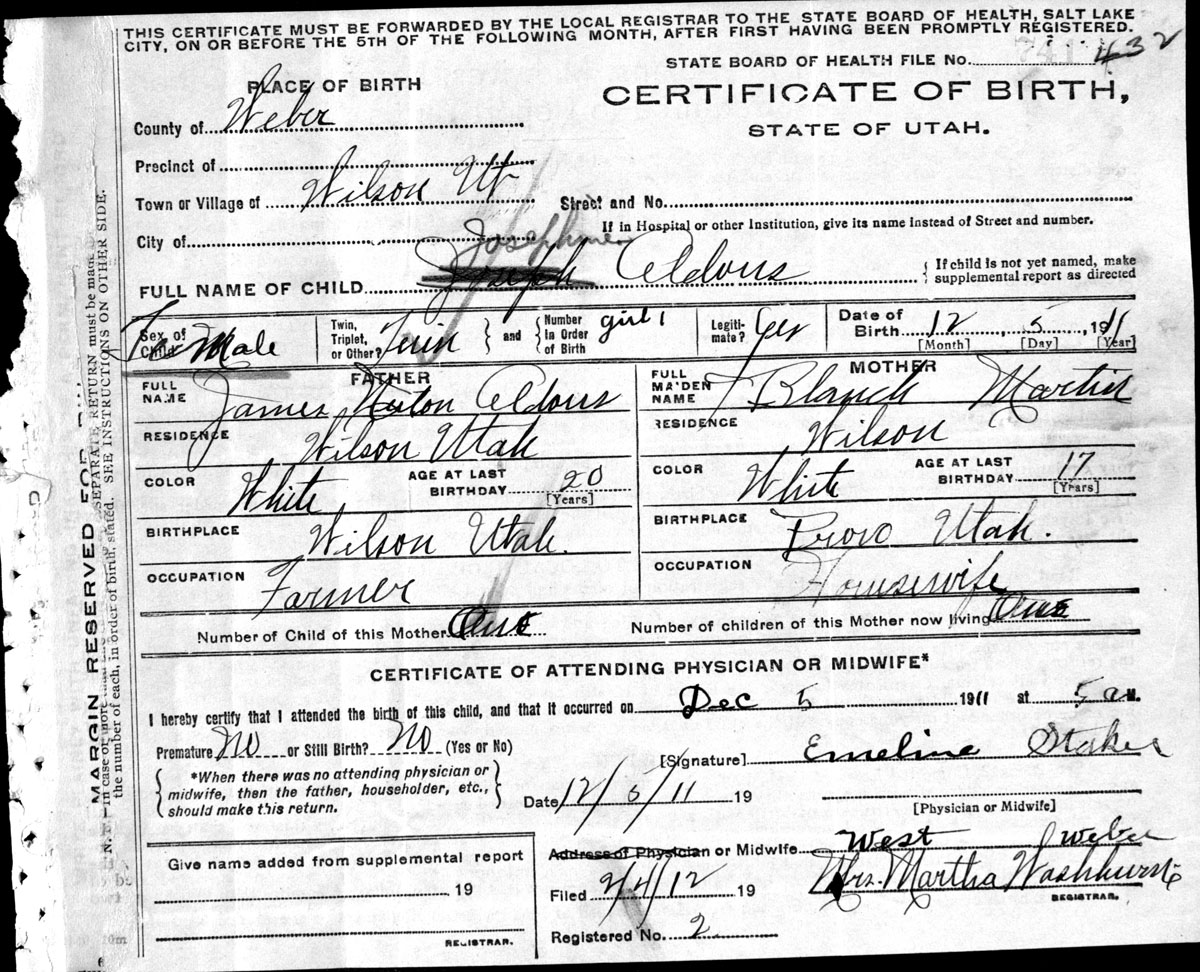 THIS CERTIFICATE MUST BE FORWARDED BY THE LOCAL REGISTRAR TO THE STATE BOARD OF HEALTH, SALT LAKE
CITY, ON OR BEFORE THE 5TH OF THE FOLLOWING MONTH, AFTER FIRST HAVING BEEN PROMPTLY REGISTERED.
STATE BOARD OF HEALTH FILE No. 432
PLACE OF BIRTH
CERTIFICATE OF BIRTH,
STATE OF UTAH.
County of Weber
Precinct of
Town or Village of Wilson Ut
Street and No.
If in Hospital or other Institution, give its name instead of Street and number.
City of
Josephine
FULL NAME OF CHILD Joseph Aldous
{ If child is not yet named, make
supplemental report as directed
Sex of Child Fe Male
Twin, Triplet, or Other? Twin } and { Number In Order of Birth girl 1
Legitimate? Yes
Date of Birth 12 5, 1911
[Month] [Day] [Year]
FATHER
FULL NAME James Aldous
RESIDENCE Wilson Utah
COLOR White
AGE AT LAST BIRTHDAY 20
[Years]
BIRTHPLACE Wilson Utah.
OCCUPATION Farmer
MOTHER
FULL MAIDEN NAME Blanch Martin
RESIDENCE Wilson
COLOR White
AGE AT LAST BIRTHDAY 17
[Years]
BIRTHPLACE Provo Utah.
OCCUPATION Housewife
Number of Child of this Mother One
Number of children of this Mother now living One
CERTIFICATE OF ATTENDING PHYSICIAN OR MIDWIFE*
I hereby certify that I attended the birth of this child, and that it occurred on Dec 5 1911 at 5 a M.
Premature No or Still Birth? No (Yes or No)
[Signature] Emeline Staker
{ *When there was no attending physician or
midwife, then the father, householder, etc.,
should make this return. }
Date 12/5/11 19
[Physician or Midwife]
Address of Physician or Midwife West Weber
Give name added from supplemental report
19
REGISTRAR.
Filed 2/4/12 19
Mrs. Martha Washburn
REGISTRAR.
Registered No. 2
MARGIN RESERVED FOR
SEPARATE RETURN must be made
the number of each, in order of birth, stated. SEE INSTRUCTIONS ON OTHER SIDE.